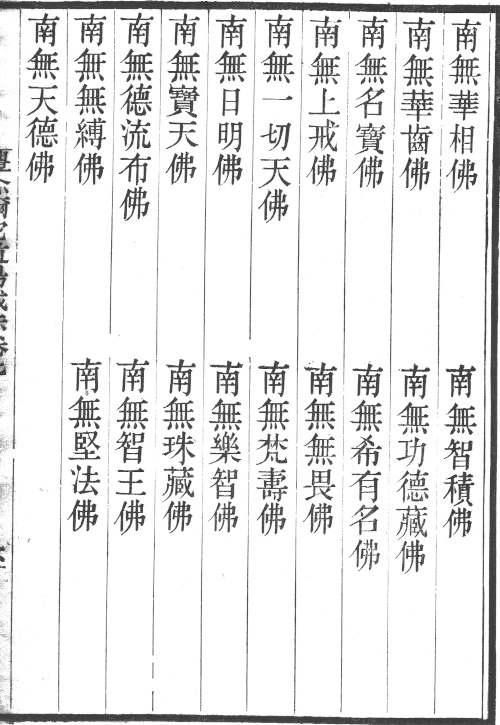 南無華相佛　南無智積佛
南無華齒佛　南無功德藏佛
南無名寶佛　南無希有名佛
南無上戒佛　南無無畏佛
南無一切天佛　南無梵壽佛
南無日明佛　南無樂智佛
南無寶天佛　南無珠藏佛
南無德流布佛　南無智王佛
南無無縛佛　南無堅法佛
南無天德佛